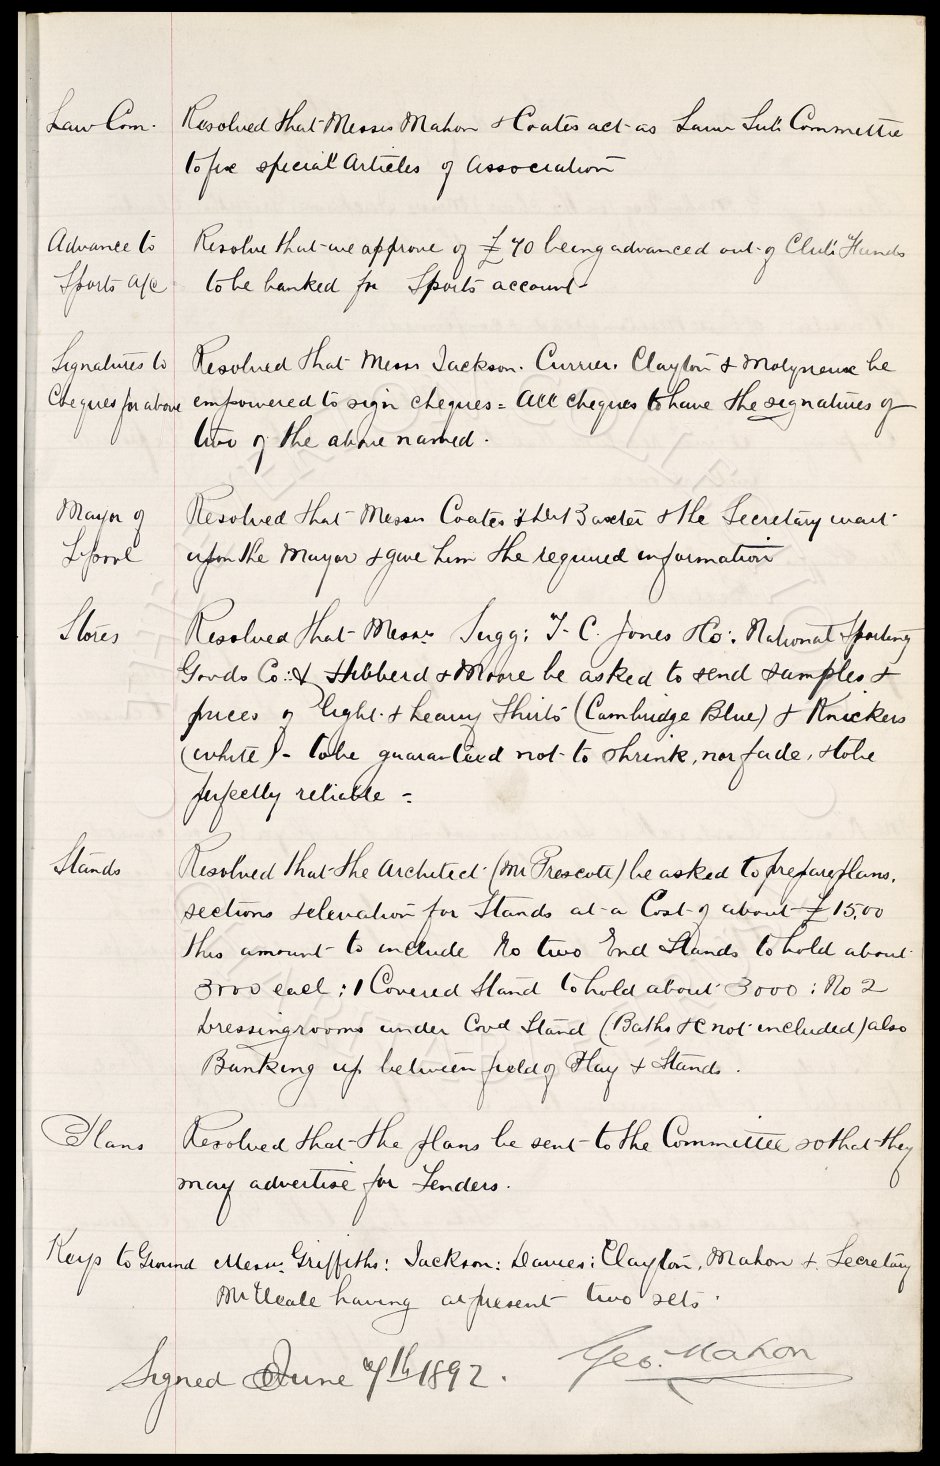 Law Com. Resolved that Messrs Mahon & Coates act as Law Sub Committee
to fix special Articles of Association
Advance to Resolve that we approve of £70 being advanced out of Club Funds
Sports a/c to be banked for Sports account
Signatures to Resolved that Messrs Jackson. Currier. Clayton & Molyneux be
Cheques for above empowered to sign cheques = All cheques to have the signatures of
two of the above named.
Mayor of Resolved that Messrs Coates & Dr Baxter & the Secretary wait
L'pool upon the Mayor & give him the required information
Stores Resolved that Messrs Sugg: T. C. Jones & Co: National Sporting
Goods Co: & Hibberd & Moore be asked to send samples &
prices of light & heavy Shirts (Cambridge Blue) & Knickers
(white) - to be guaranteed not to shrink, nor fade, & to be
perfectly reliable =
Stands Resolved that the Architect (Mr Prescott) be asked to prepare plans,
sections & elevation for Stands at a Cost of about £1500
this amount to include No two End Stands to hold about
3000 each: 1 Covered Stand to hold about 3000: No 2
Dressingrooms under Cov'd Stand (Baths &c not included) also
Banking up between field of Play & Stands.
Plans Resolved that the plans be sent to the Committee so that they
may advertise for Tenders.
Keys to Ground Messrs. Griffiths: Jackson: Davies: Clayton, Mahon & Secretary
Mr Neale having at present two sets.
Signed June 7th 1892. Geo. Mahon